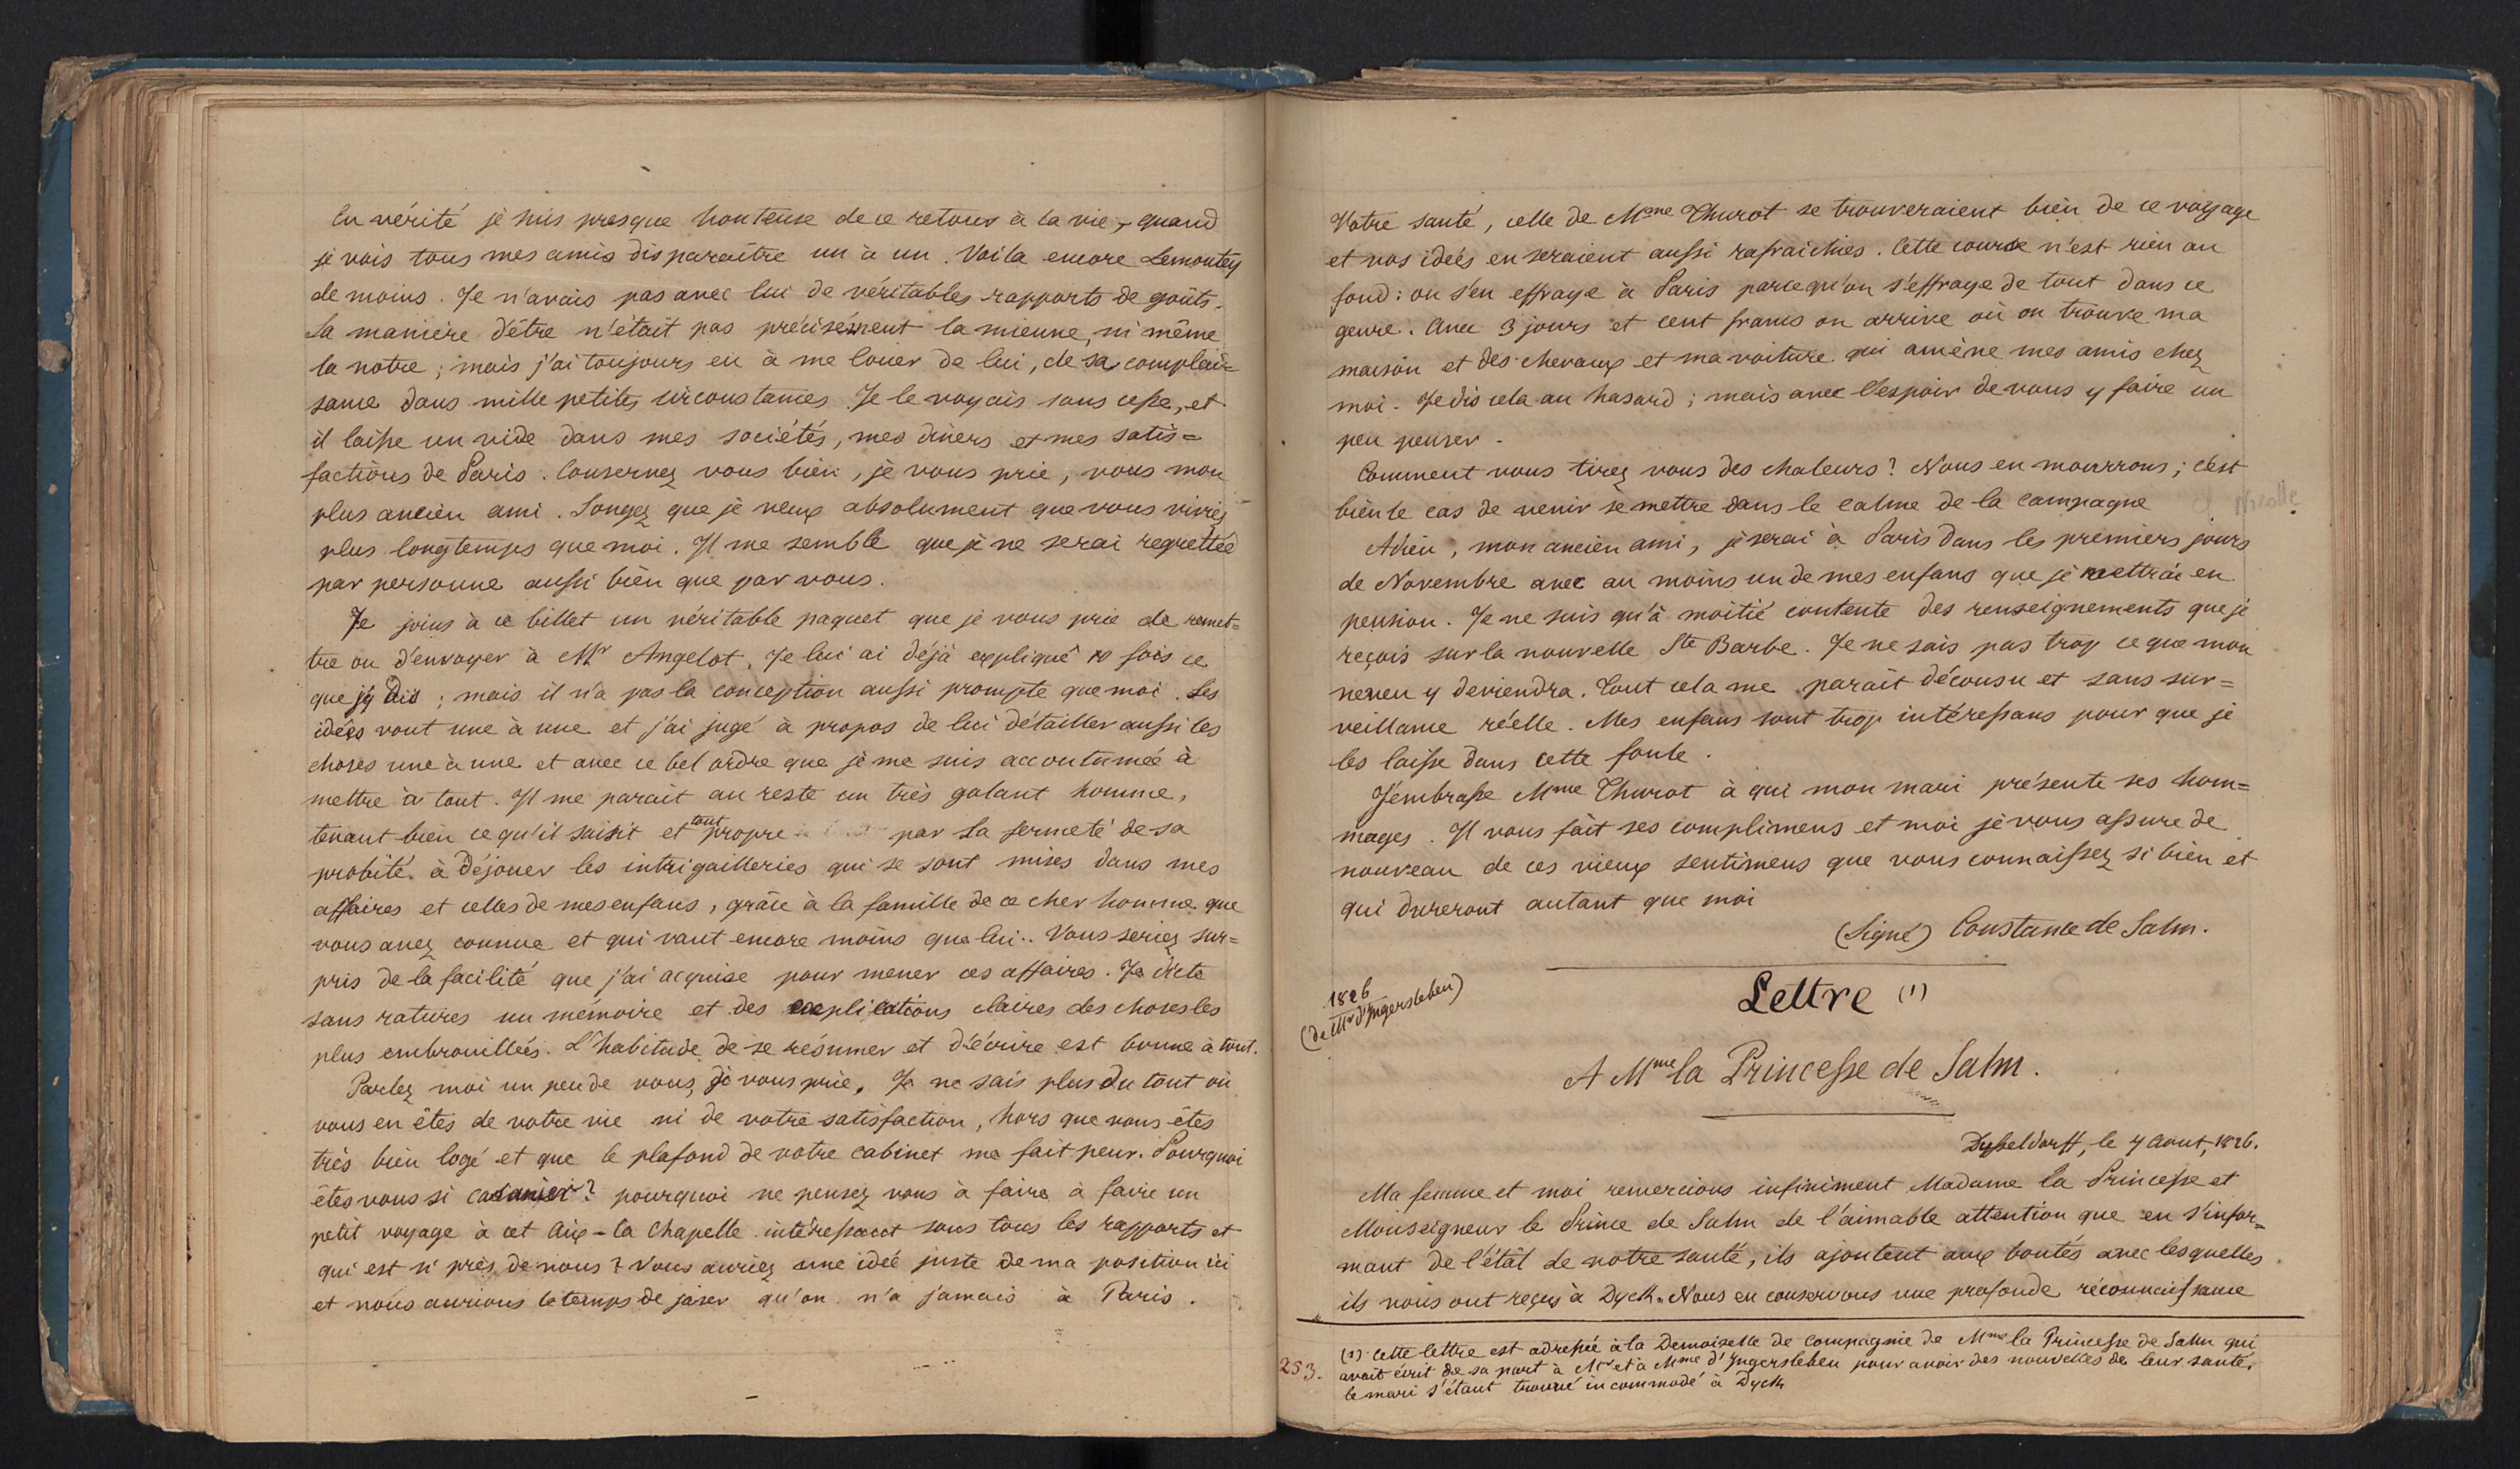 En vérité je suis presque honteuse de ce retour à la vie, quand
je vois tous mes amis disparaître un à un. Voila encore Lemontey
de moins. Je n'avais pas avec lui de véritables rapports de goûts.
Sa manière d'être n'était pas précisément la mienne, ni même
la notre; mais j'ai toujours eu à me louer de lui, de sa complai=
sance dans mille petites circonstances. Je le voyais sans cesse, et
il laisse un vide dans mes sociétés, mes diners et mes satis=
factions de Paris. Conservez vous bien, je vous prie, vous mon
plus ancien ami. Songez que je veux absolument que vous viviez
plus longtemps que moi. Il me semble que je ne serai regrettée
par personne aussi bien que par vous.
Je joins à ce billet un véritable paquet que je vous prie de remet=
tre ou d'envoyer à Mr Angelot. Je lui ai déjà expliqué 10 fois ce
que j'y dis; mais il n'a pas la conception aussi prompte que moi. Ses
idées vont une à une et j'ai jugé à propos de lui détailler aussi les
choses une à une et avec ce bel ordre que je me suis accoutumée à
mettre à tout. Il me parait au reste un très galant homme,
tenant bien ce qu'il saisit et tout propre par la fermeté de sa
probité à déjouer les intrigailleries qui se sont mises dans mes
affaires et celles de mes enfans, grâce à la famille de ce cher homme que
vous avez connue et qui vaut encore moins que lui.. Vous seriez sur=
pris de la facilité que j'ai acquise pour mener ces affaires. Je dicte
sans ratures un mémoire et des explications claires des choses les
plus embrouillées. L'habitude de se résumer et d'écrire est bonne à tout.
Parlez moi un peu de vous, je vous prie. Je ne sais plus du tout où
vous en êtes de votre vie ni de votre satisfaction, hors que vous êtes
très bien logé et que le plafond de votre cabinet me fait peur. Pourquoi
êtes vous si casanier? pourquoi ne pensez vous à faire à faire un
petit voyage à cet Aix-la Chapelle intéressant sous tous les rapports et
qui est si près de nous? Vous auriez une idée juste de ma position ici
et nous aurions le temps de jaser qu'on n'a jamais à Paris.
Votre santé, celle de Mme Thurot se trouveraient bien de ce voyage
et vos idées en seraient aussi rafraichies. Cette course n'est rien au
fond: on s'en effraye à Paris parcequ'on s'effraye de tout dans ce
genre. Avec 3 jours et cent francs on arrive où on trouve ma
maison et des chevaux et ma voiture qui amène mes amis chez
moi. Je dis cela au hasard; mais avec l'espoir de vous y faire un
peu penser.
Comment vous tirez vous des chaleurs? Nous en mourrons; c'est
bien le cas de venir se mettre dans le calme de la campagne
Adieu, mon ancien ami, je serai à Paris dans les premiers jours
de Novembre avec au moins un de mes enfans que je mettrai en
pension. Je ne suis qu'à moitié contente des renseignements que je
reçois sur la nouvelle Ste Barbe. Je ne sais pas trop ce que mon
neveu y deviendra. Tout cela me parait décousu et sans sur=
veillance réelle. Mes enfans sont trop intéressans pour que je
les laisse dans cette foule.
J'embrasse Mme Thurot à qui mon mari présente ses hom=
mages. Il vous fait ses complimens et moi je vous assure de
nouveau de ces vieux sentimens que vous connaissez si bien et
qui dureront autant que moi
(Signé) Constance de Salm.
1826
(de Mr d'Ingersleben)
Lettre (1)
A Mme la Princesse de Salm.
Dysseldorff, le 7 Aout, 1826.
Ma femme et moi remercions infiniment Madame la Princesse et
Monseigneur le Prince de Salm de l'aimable attention que en s'infor=
mant de l'état de notre santé, ils ajoutent aux bontés avec lesquelles
ils nous ont reçus à Dyck. Nous en conservons une profonde réconnaissance
(1) Cette lettre est adressée à la Demoiselle de Compagnie de Mme la Princesse de Salm qui
avait écrit de sa part à Mr et à Mme d'Ingersleben pour avoir des nouvelles de leur santé,
le mari s'étant trouvé incommodé à Dyck
253.